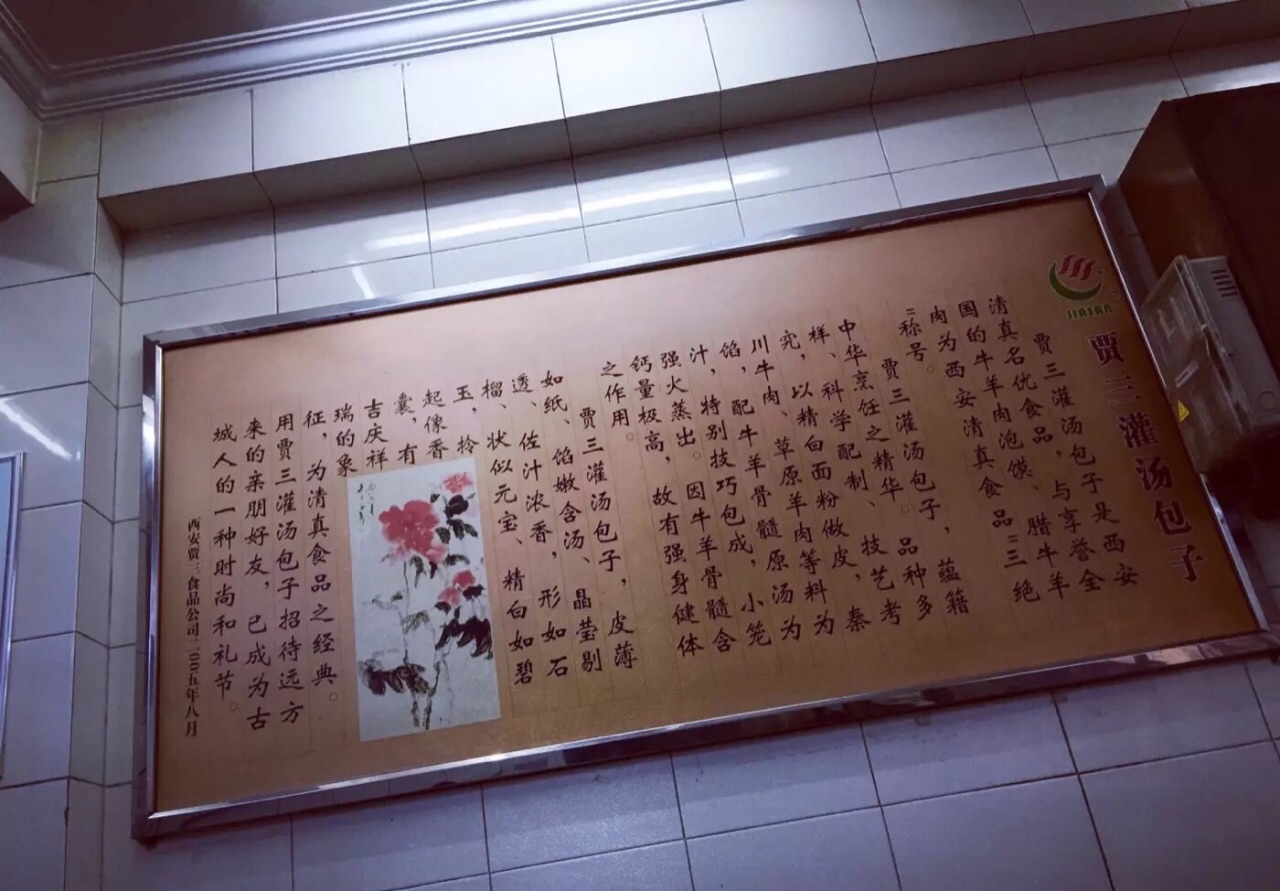 JIASAN
贾三灌汤包子
贾三灌汤包子是西安
清真名优食品,与享誉全
国的牛羊肉泡馍、腊牛羊
肉为西安清真食品“三绝
”称号。
贾三灌汤包子,蕴藉
中华烹饪之精华。品种多
样、科学配制、技艺考
究,以精白面粉做皮,秦
川牛肉、草原羊肉等料为
馅,配牛羊骨髓原汤为
汁,特别技巧包成,小笼
强火蒸出。因牛羊骨髓含
钙量极高,故有强身健体
之作用。
贾三灌汤包子,皮薄
如纸、馅嫩含汤、晶莹剔
透、佐汁浓香,形如石
榴、状似元宝、精白如碧
玉,拎
起像香
囊,有
吉庆祥
瑞的象
征,为清真食品之经典。
用贾三灌汤包子招待远方
来的亲朋好友,已成为古
城人的一种时尚和礼节。
西安贾三食品公司二00五年八月